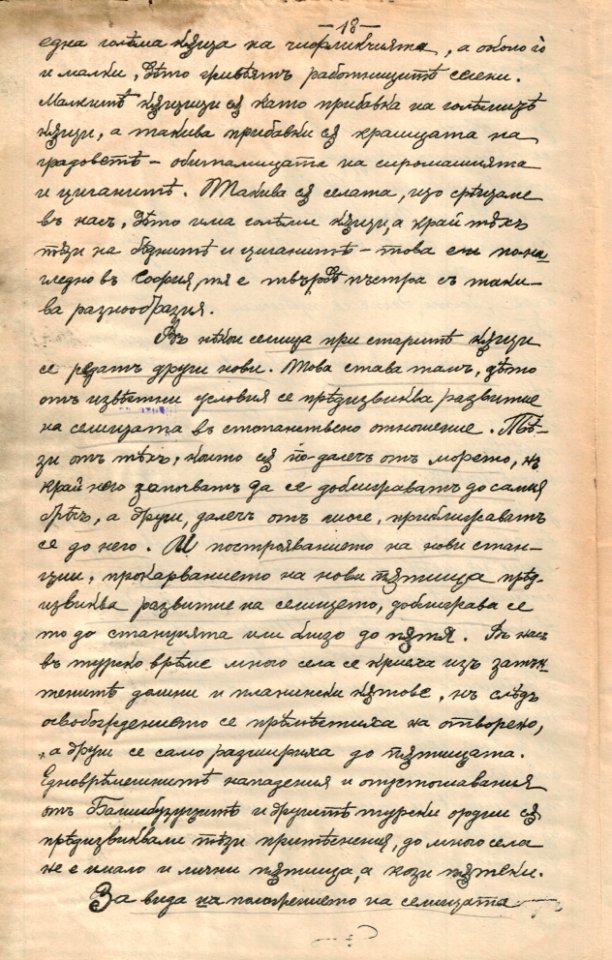 —18—
една голѣма кѫща на чифликчията, а около ѝ
и малки, дѣто живѣятъ работницитѣ селени.
Малкитѣ кѫщици сѫ като прибавка на голѣмитѣ
кѫщи, а такива прибавки сѫ краищата на
градоветѣ – обиталищата на сиромашията
и циганитѣ. Такива сѫ селата, що срѣщаме
въ насъ, дѣто има голѣми кѫщи, а край тѣхъ
тѣзи на бѣднитѣ и циганитѣ – това е по на-
гледно въ София, тя е твърдѣ пъстра съ таки-
ва разнообразия.
Въ нѣкои селища при старитѣ кѫщи
се редатъ други нови. Това става тамъ, дѣто
отъ извѣстни условия се прѣдизвиква развитие
на селищата въ стопанствено отношение. Тѣ-
зи отъ тѣхъ, които сѫ по-далечъ отъ морето, нъ
край него започватъ да се доближаватъ до самия
брѣгъ, а други, далечъ отъ шосе, приближаватъ
се до него. И построяванието на нови стан-
ции, прокарванието на нови пѫтища прѣд-
извиква развитие на селището, доближава се
то до станцията или близо до пѫтя. Въ насъ
въ турско врѣме много села се криеха изъ затън-
тенитѣ долини и планински кѫтове, нъ слѣдъ
освобождението се прѣмѣстиха на отворено,
а други се само разшириха до пѫтищата.
Едноврѣмешнитѣ нападения и опустошавания
отъ Башибузуцитѣ и другитѣ турски ордии сѫ
прѣдизвиквали тѣзи притѣснения, до много села
не е имало и лични пѫтища, а кози пѫтеки.
За вида на положението на селищата